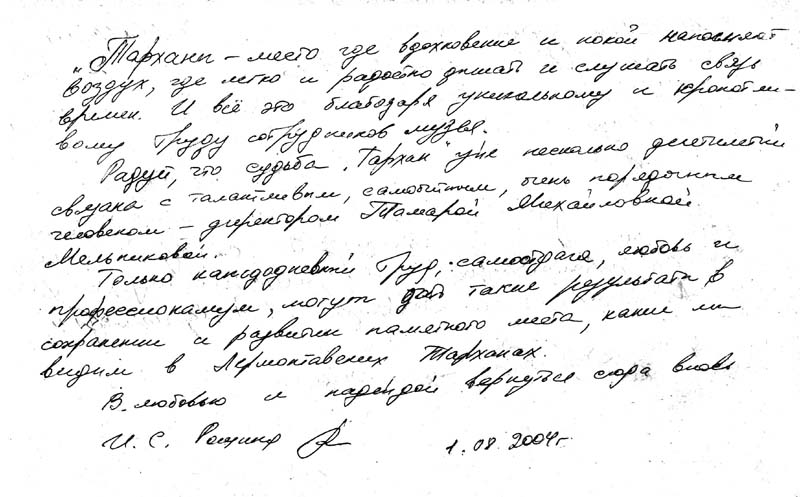 „Тарханы – место где вдохновение и покой наполняют
воздух, где легко и радостно дышать и слушать связь
времен. И всё это благодаря уникальному и кропотли-
вому труду сотрудников музея.
Радует, что судьба „Тархан" уже несколько десятилетий
связана с талантливым, самобытным, очень порядочным
человеком – директором Тамарой Михайловной
Мельниковой.
Только каждодневный труд, самоотдача, любовь и
профессионализм, могут дать такие результаты в
сохранении и развитии памятного места, какие мы
видим в Лермонтовских Тарханах.
С любовью и надеждой вернуться сюда вновь
И. С. Рощина 1.08.2004г.